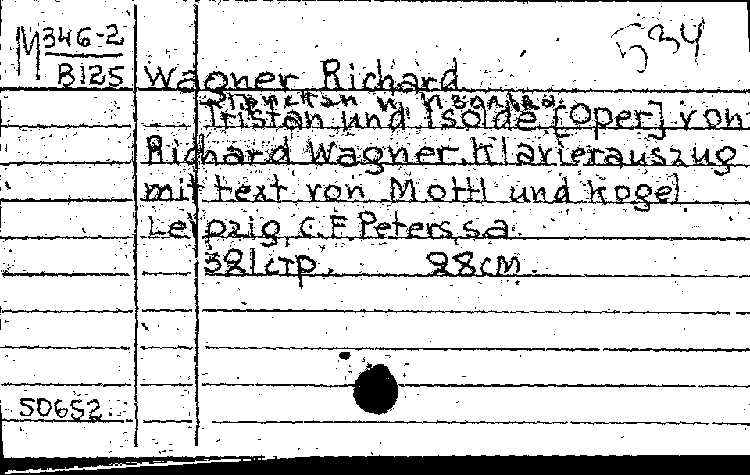 M 346-2 534
B125 Wagner Richard
Тристан и Изольда.
Tristan und Isolde [Oper] von
Richard Wagner. Klavierauszug
mit text von Mottl und Kogel
Leipzig, C.F. Peters, s.a.
381 стр. 28 см.
50652